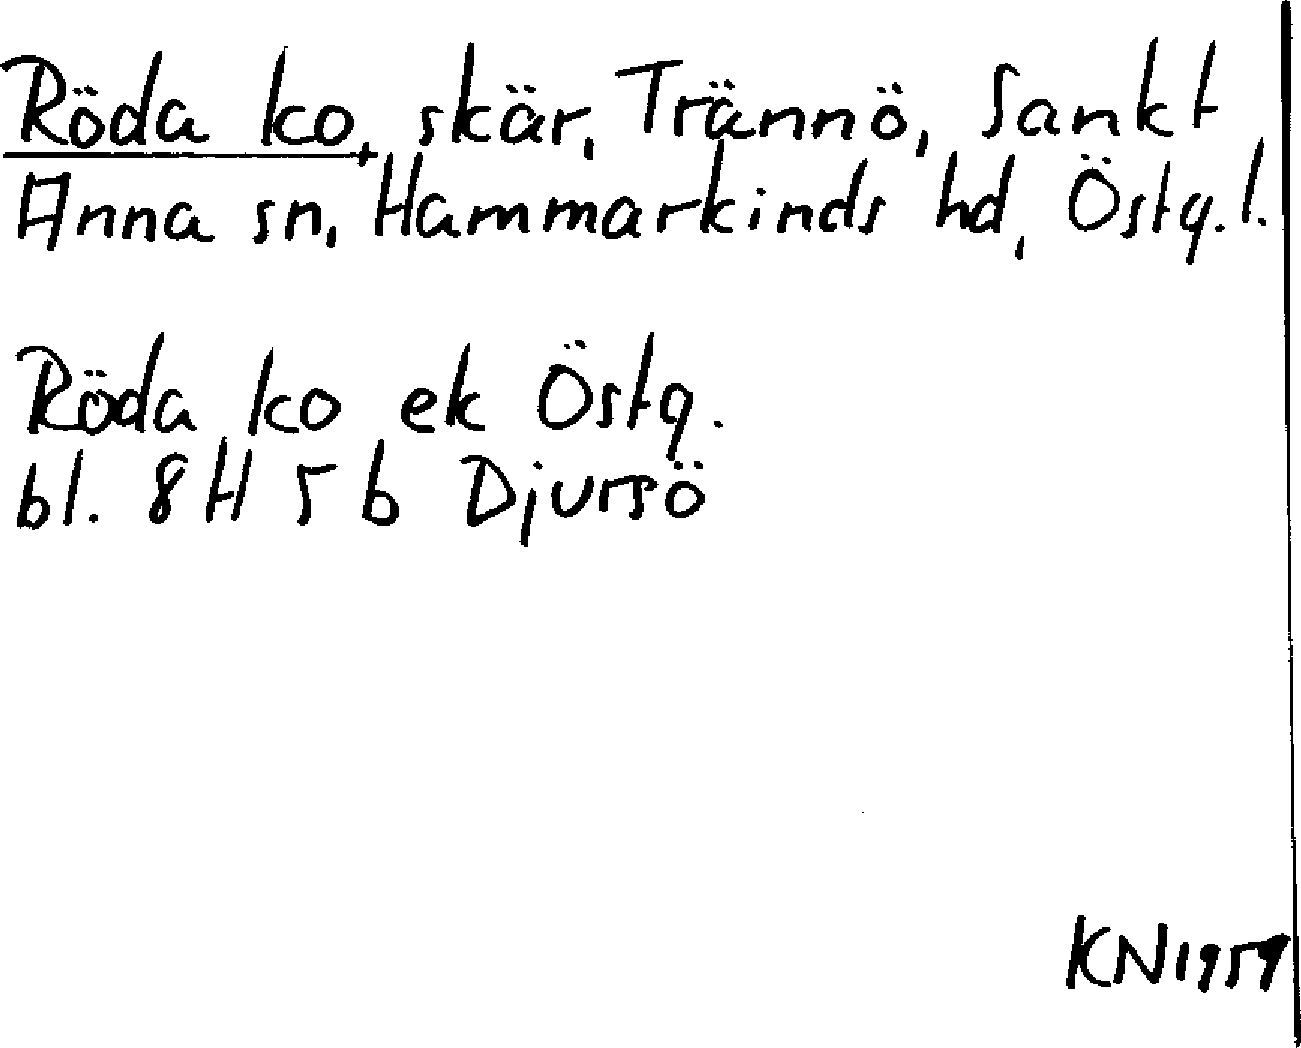 Röda ko, skär, Trännö, Sankt
Anna sn, Hammarkinds hd, Östg.l.
Röda ko ek Östg.
bl. 8H 5 b Djursö
KN1959